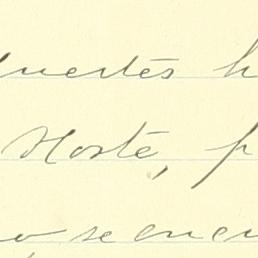 uertes h
Norte, p
o, se encu